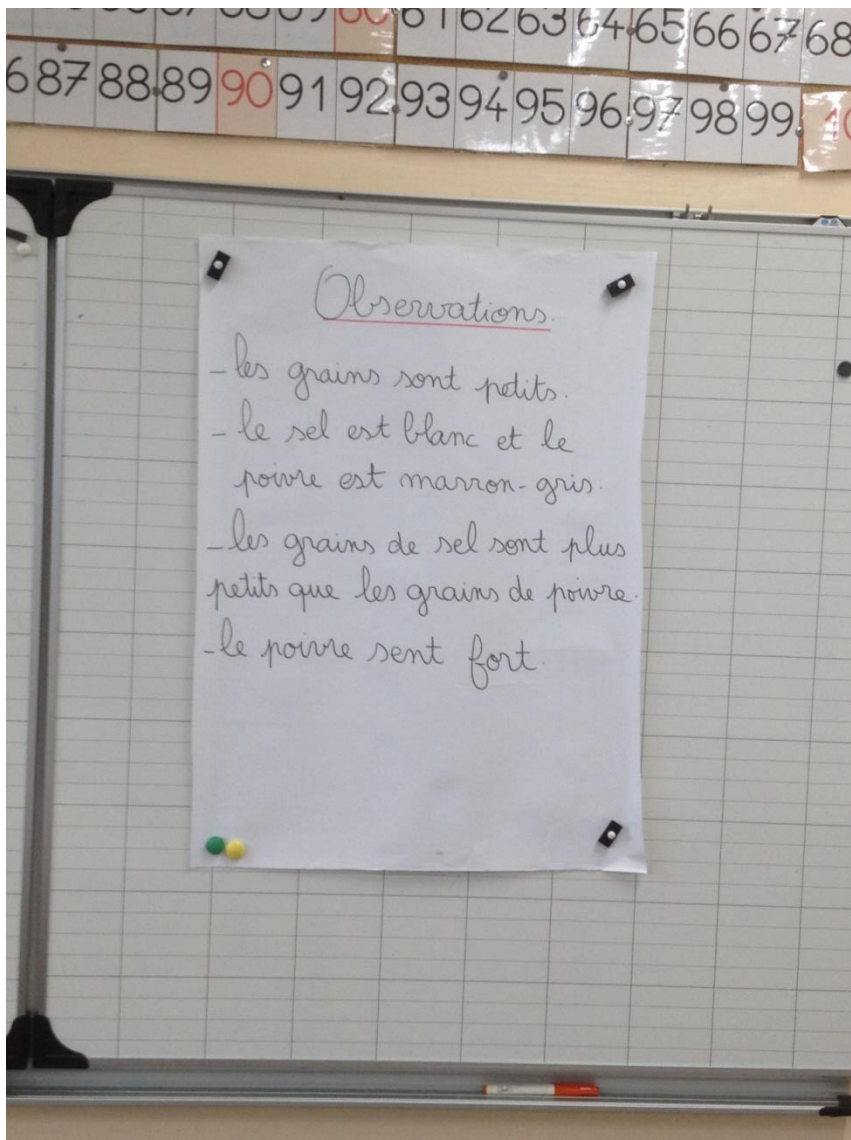 61 62 63 64 65 66 67 68
87 88 89 90 91 92 93 94 95 96 97 98 99
Observations.
- les grains sont petits.
- le sel est blanc et le
poivre est marron-gris.
- les grains de sel sont plus
petits que les grains de poivre.
- le poivre sent fort.